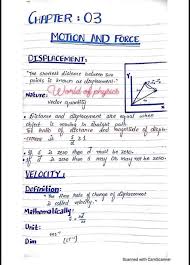 CHAPTER : 03
MOTION AND FORCE
DISPLACEMENT:
"The shortest distance between two
points is known as displacement."
Nature:
World of physics
Vector quantity
Distance and displacement are equal when
object is moving in straight path
ratio of distance and magnitude of displ-
acement is ≥ 1
If d is zero than s must be zero.
If s is zero than d may or may not be zero.
VELOCITY:
Definition:
"The time rate of change of displacement
is called velocity."
Mathematically
Unit: ms⁻¹
Dim [LT⁻¹]
Scanned with CamScanner